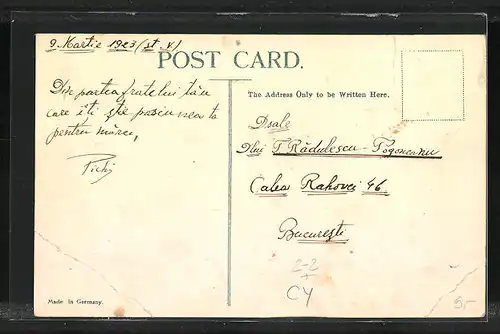 9 Martie 1923 (st. v.)
POST CARD.
Din partea fratelui tău
care îți știe pasiunea ta
pentru mărci,
The Address Only to be Written Here.
Dsale
Dlui T. Rădulescu-Pogoneanu
Calea Rahovei 46
București
2-2
CY
Made in Germany.
5,-